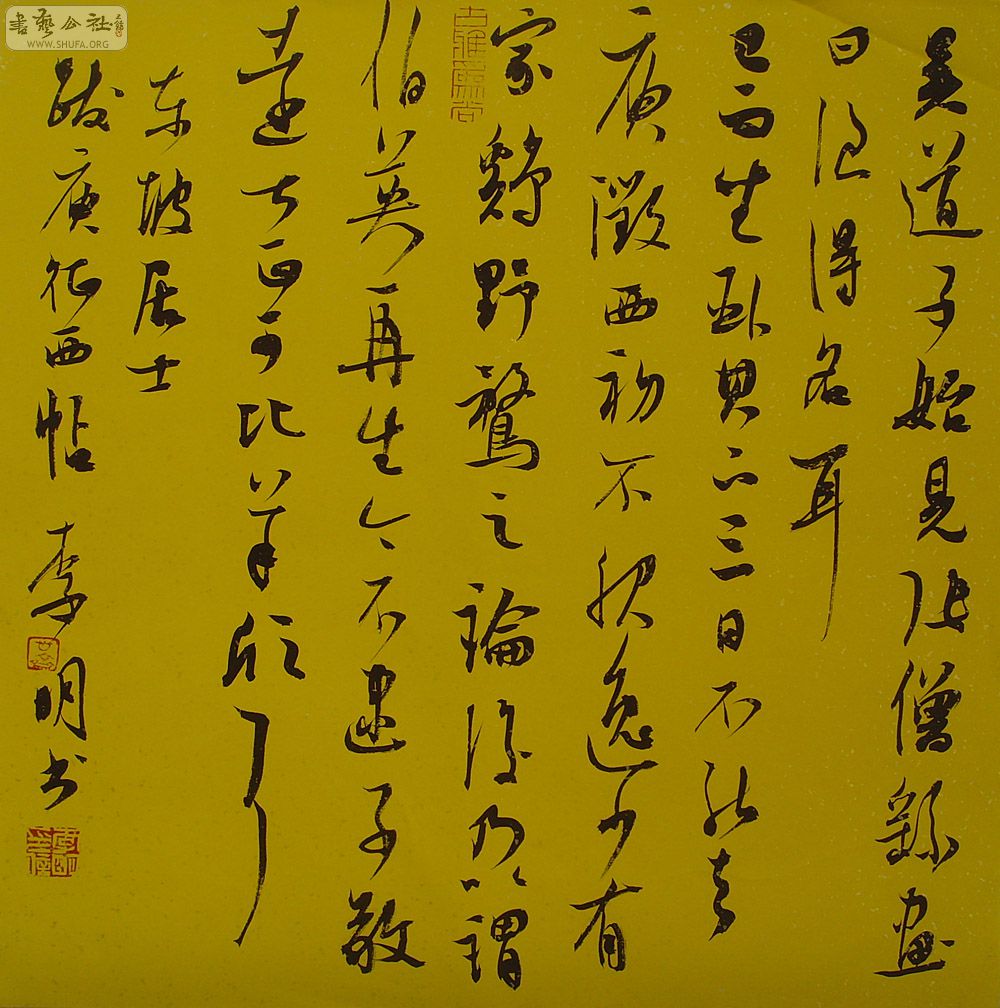 吴道子始见张僧繇画
曰浪得名耳
已而坐卧其下三日不能去
庾征西初不服逸少有
家鸡野鹜之论后乃以谓
伯英再生今不逮子敬
远甚正可比羊欣耳
东坡居士
跋庾征西帖 李明书
古雅为尚
書藝公社
WWW.SHUFA.ORG